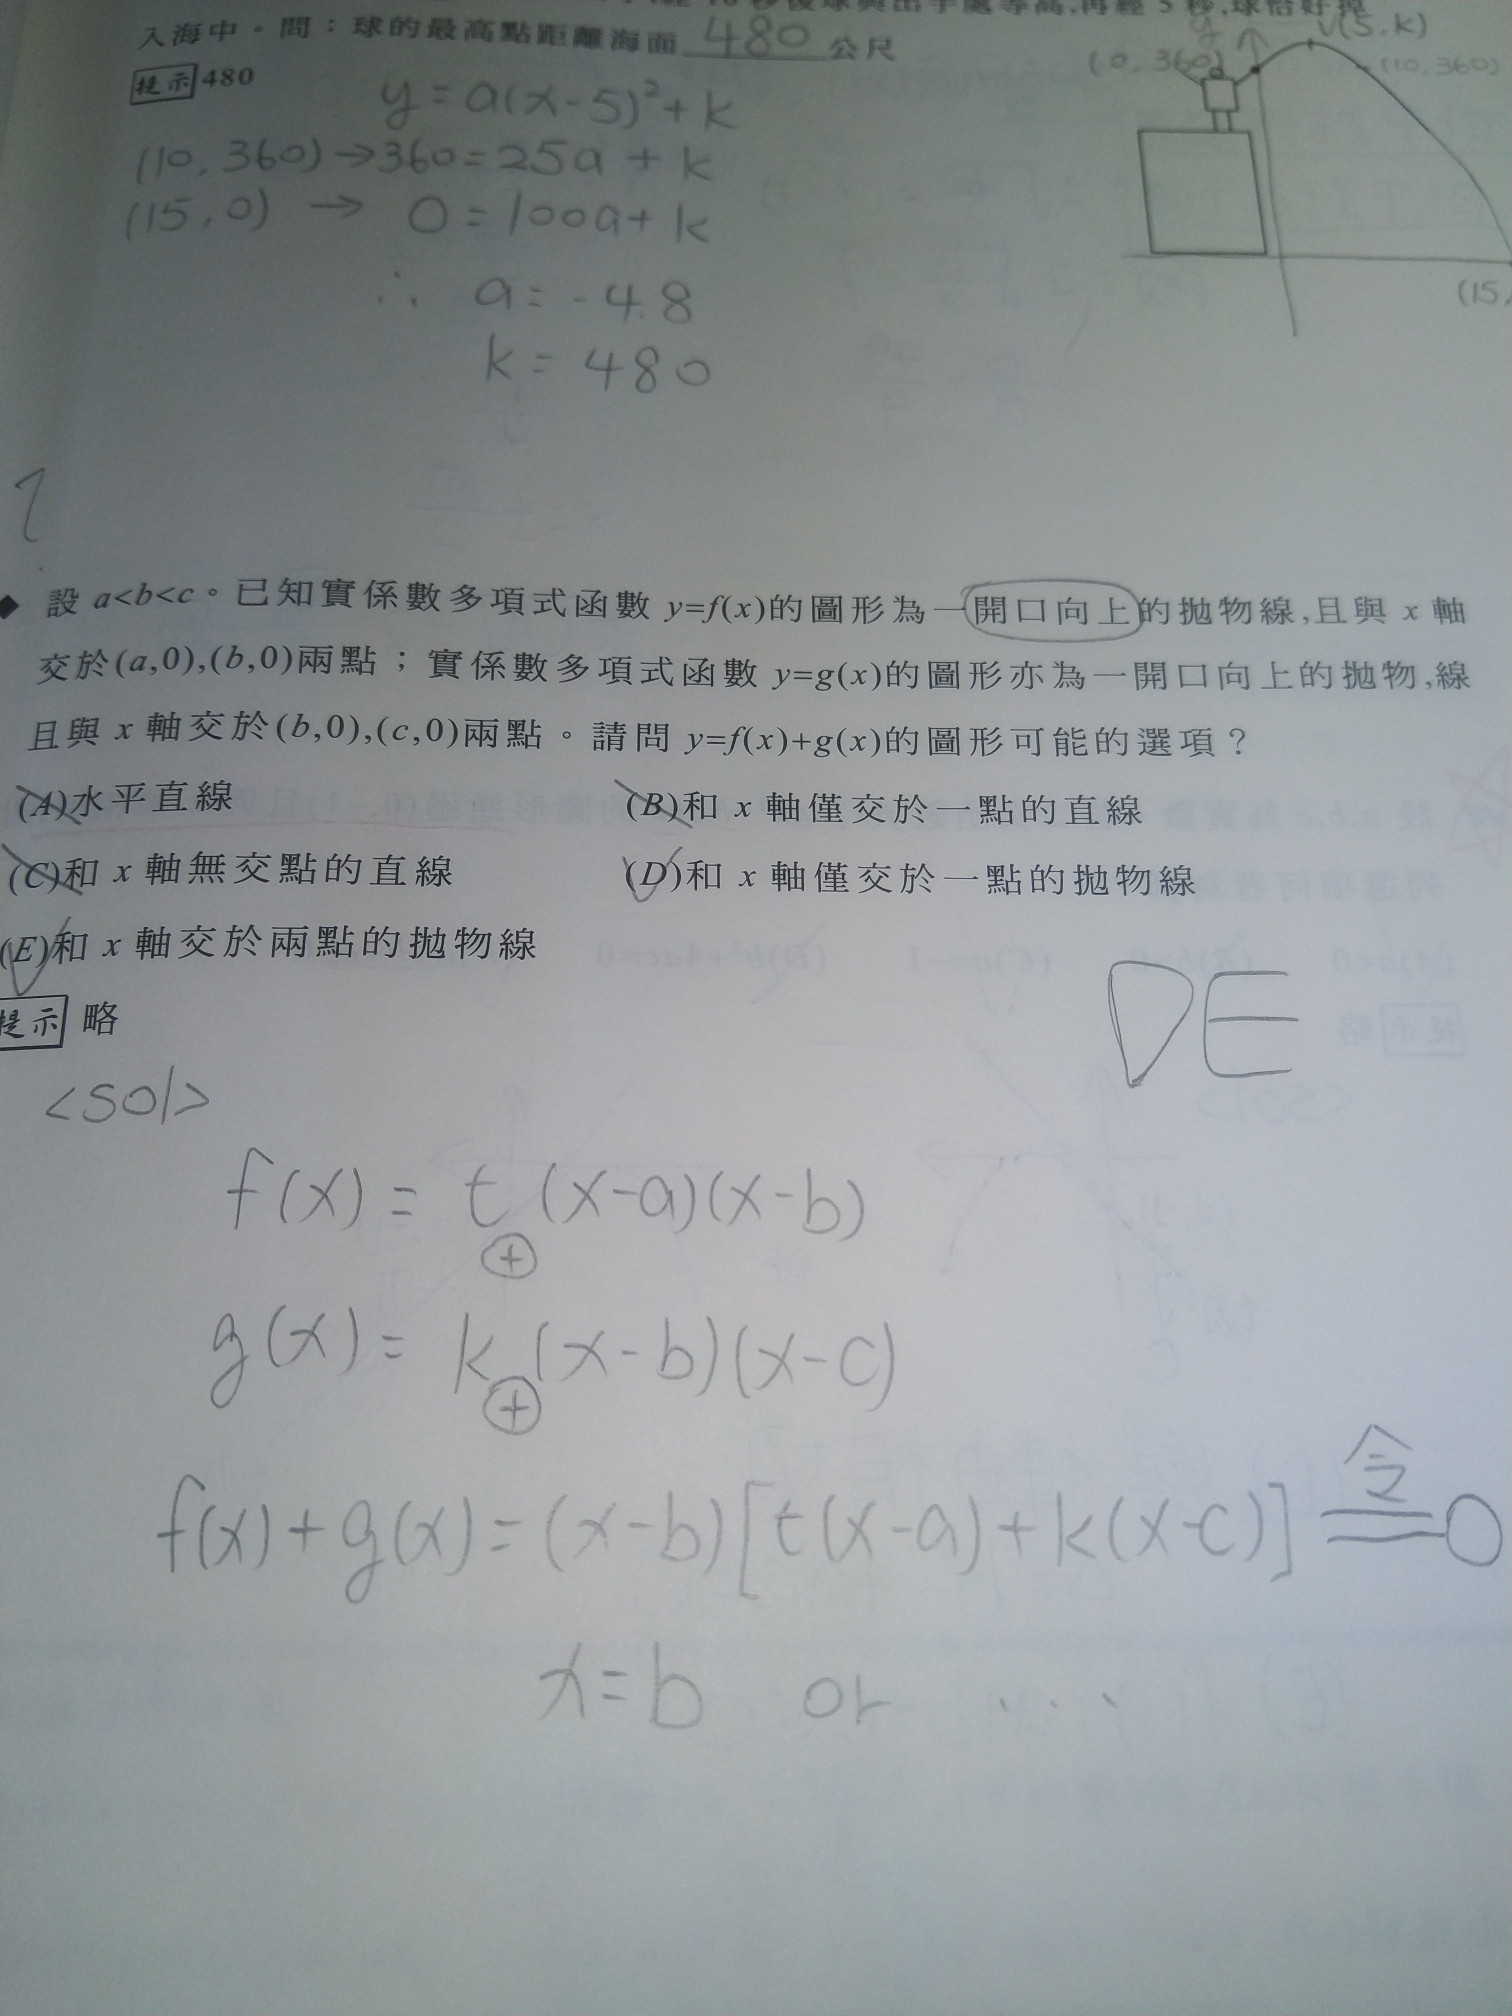 10 秒後球與出手處等高,再經 5 秒,球恰好掉
入海中。問:球的最高點距離海面 480 公尺
y
V(5,k)
(0,360)
(10,360)
提示 480
y=a(x-5)²+k
(10,360)→360=25a+k
(15,0) → 0=100a+k
(15,
∴ a=-4.8
k=480
◆ 設 a<b<c。已知實係數多項式函數 y=f(x)的圖形為一開口向上的拋物線,且與 x 軸
交於(a,0),(b,0)兩點;實係數多項式函數 y=g(x)的圖形亦為一開口向上的拋物,線
且與 x 軸交於(b,0),(c,0)兩點。請問 y=f(x)+g(x)的圖形可能的選項?
(A)水平直線 (B)和 x 軸僅交於一點的直線
(C)和 x 軸無交點的直線 (D)和 x 軸僅交於一點的拋物線
(E)和 x 軸交於兩點的拋物線
DE
提示 略
<sol>
f(x)=t(x-a)(x-b)
+
g(x)=k(x-b)(x-c)
+
f(x)+g(x)=(x-b)[t(x-a)+k(x-c)]令=0
x=b or ...